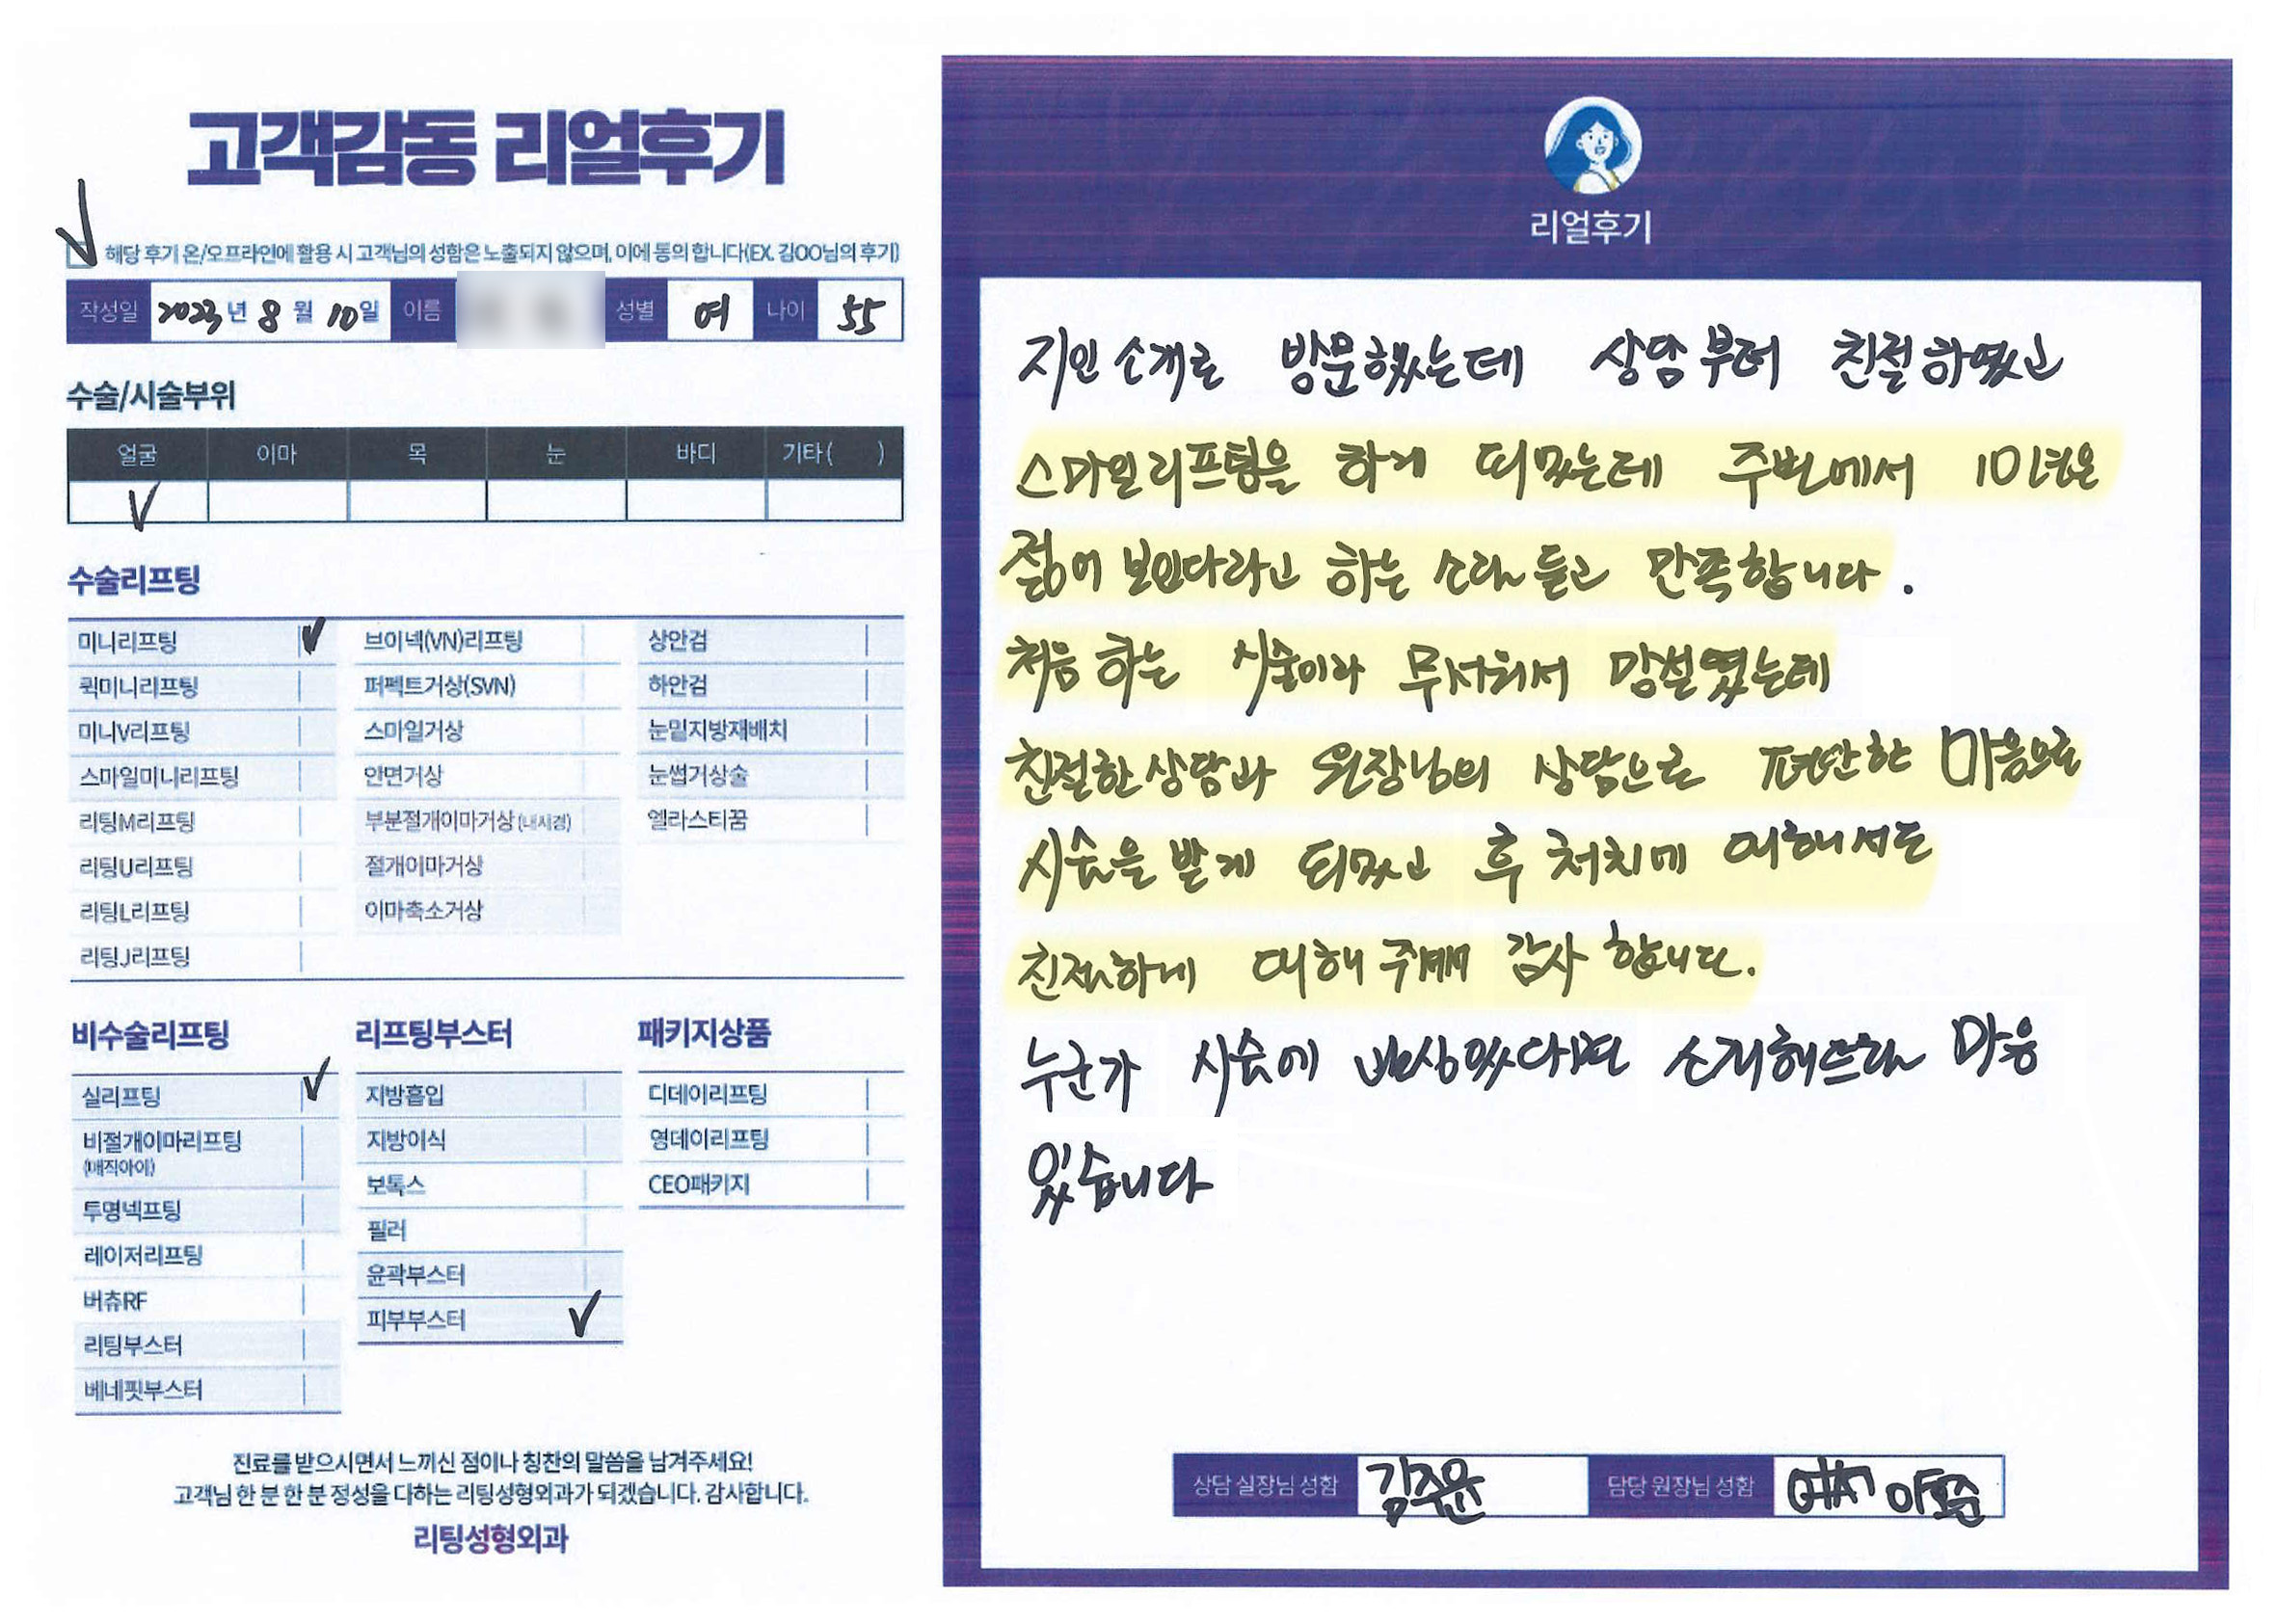 고객감동 리얼후기
해당 후기 온/오프라인에 활용 시 고객님의 성함은 노출되지 않으며, 이에 동의 합니다(EX. 김OO님의 후기)
작성일 2023년 8월 10일 이름 성별 여 나이 55
수술/시술부위
얼굴 이마 목 눈 바디 기타( )
수술리프팅
미니리프팅 브이넥(VN)리프팅 상안검
퀵미니리프팅 퍼펙트거상(SVN) 하안검
미니V리프팅 스마일거상 눈밑지방재배치
스마일미니리프팅 안면거상 눈썹거상술
리팅M리프팅 부분절개이마거상(내시경) 엘라스티꿈
리팅U리프팅 절개이마거상
리팅L리프팅 이마축소거상
리팅J리프팅
비수술리프팅 리프팅부스터 패키지상품
실리프팅 지방흡입 디데이리프팅
비절개이마리프팅 지방이식 영데이리프팅
(매직아이)
보톡스 CEO패키지
투명넥프팅 필러
레이저리프팅 윤곽부스터
버츄RF 피부부스터
리팅부스터
베네핏부스터
진료를 받으시면서 느끼신 점이나 칭찬의 말씀을 남겨주세요!
고객님 한 분 한 분 정성을 다하는 리팅성형외과가 되겠습니다. 감사합니다.
리팅성형외과
리얼후기
지인 소개로 방문했는데 상담부터 친절하였고
스마일리프팅을 하게 되었는데 주변에서 10년은
젊어 보인다라고 하는 소리를 듣고 만족합니다.
처음 하는 시술이라 무서워서 망설였는데
친절한 상담과 원장님의 상담으로 편안한 마음으로
시술을 받게 되었고 후 처치에 대해서도
친절하게 대해 주셔서 감사 합니다.
누군가 시술에 관심있다면 소개해드릴 마음
있습니다
상담 실장님 성함 김주윤 담당 원장님 성함